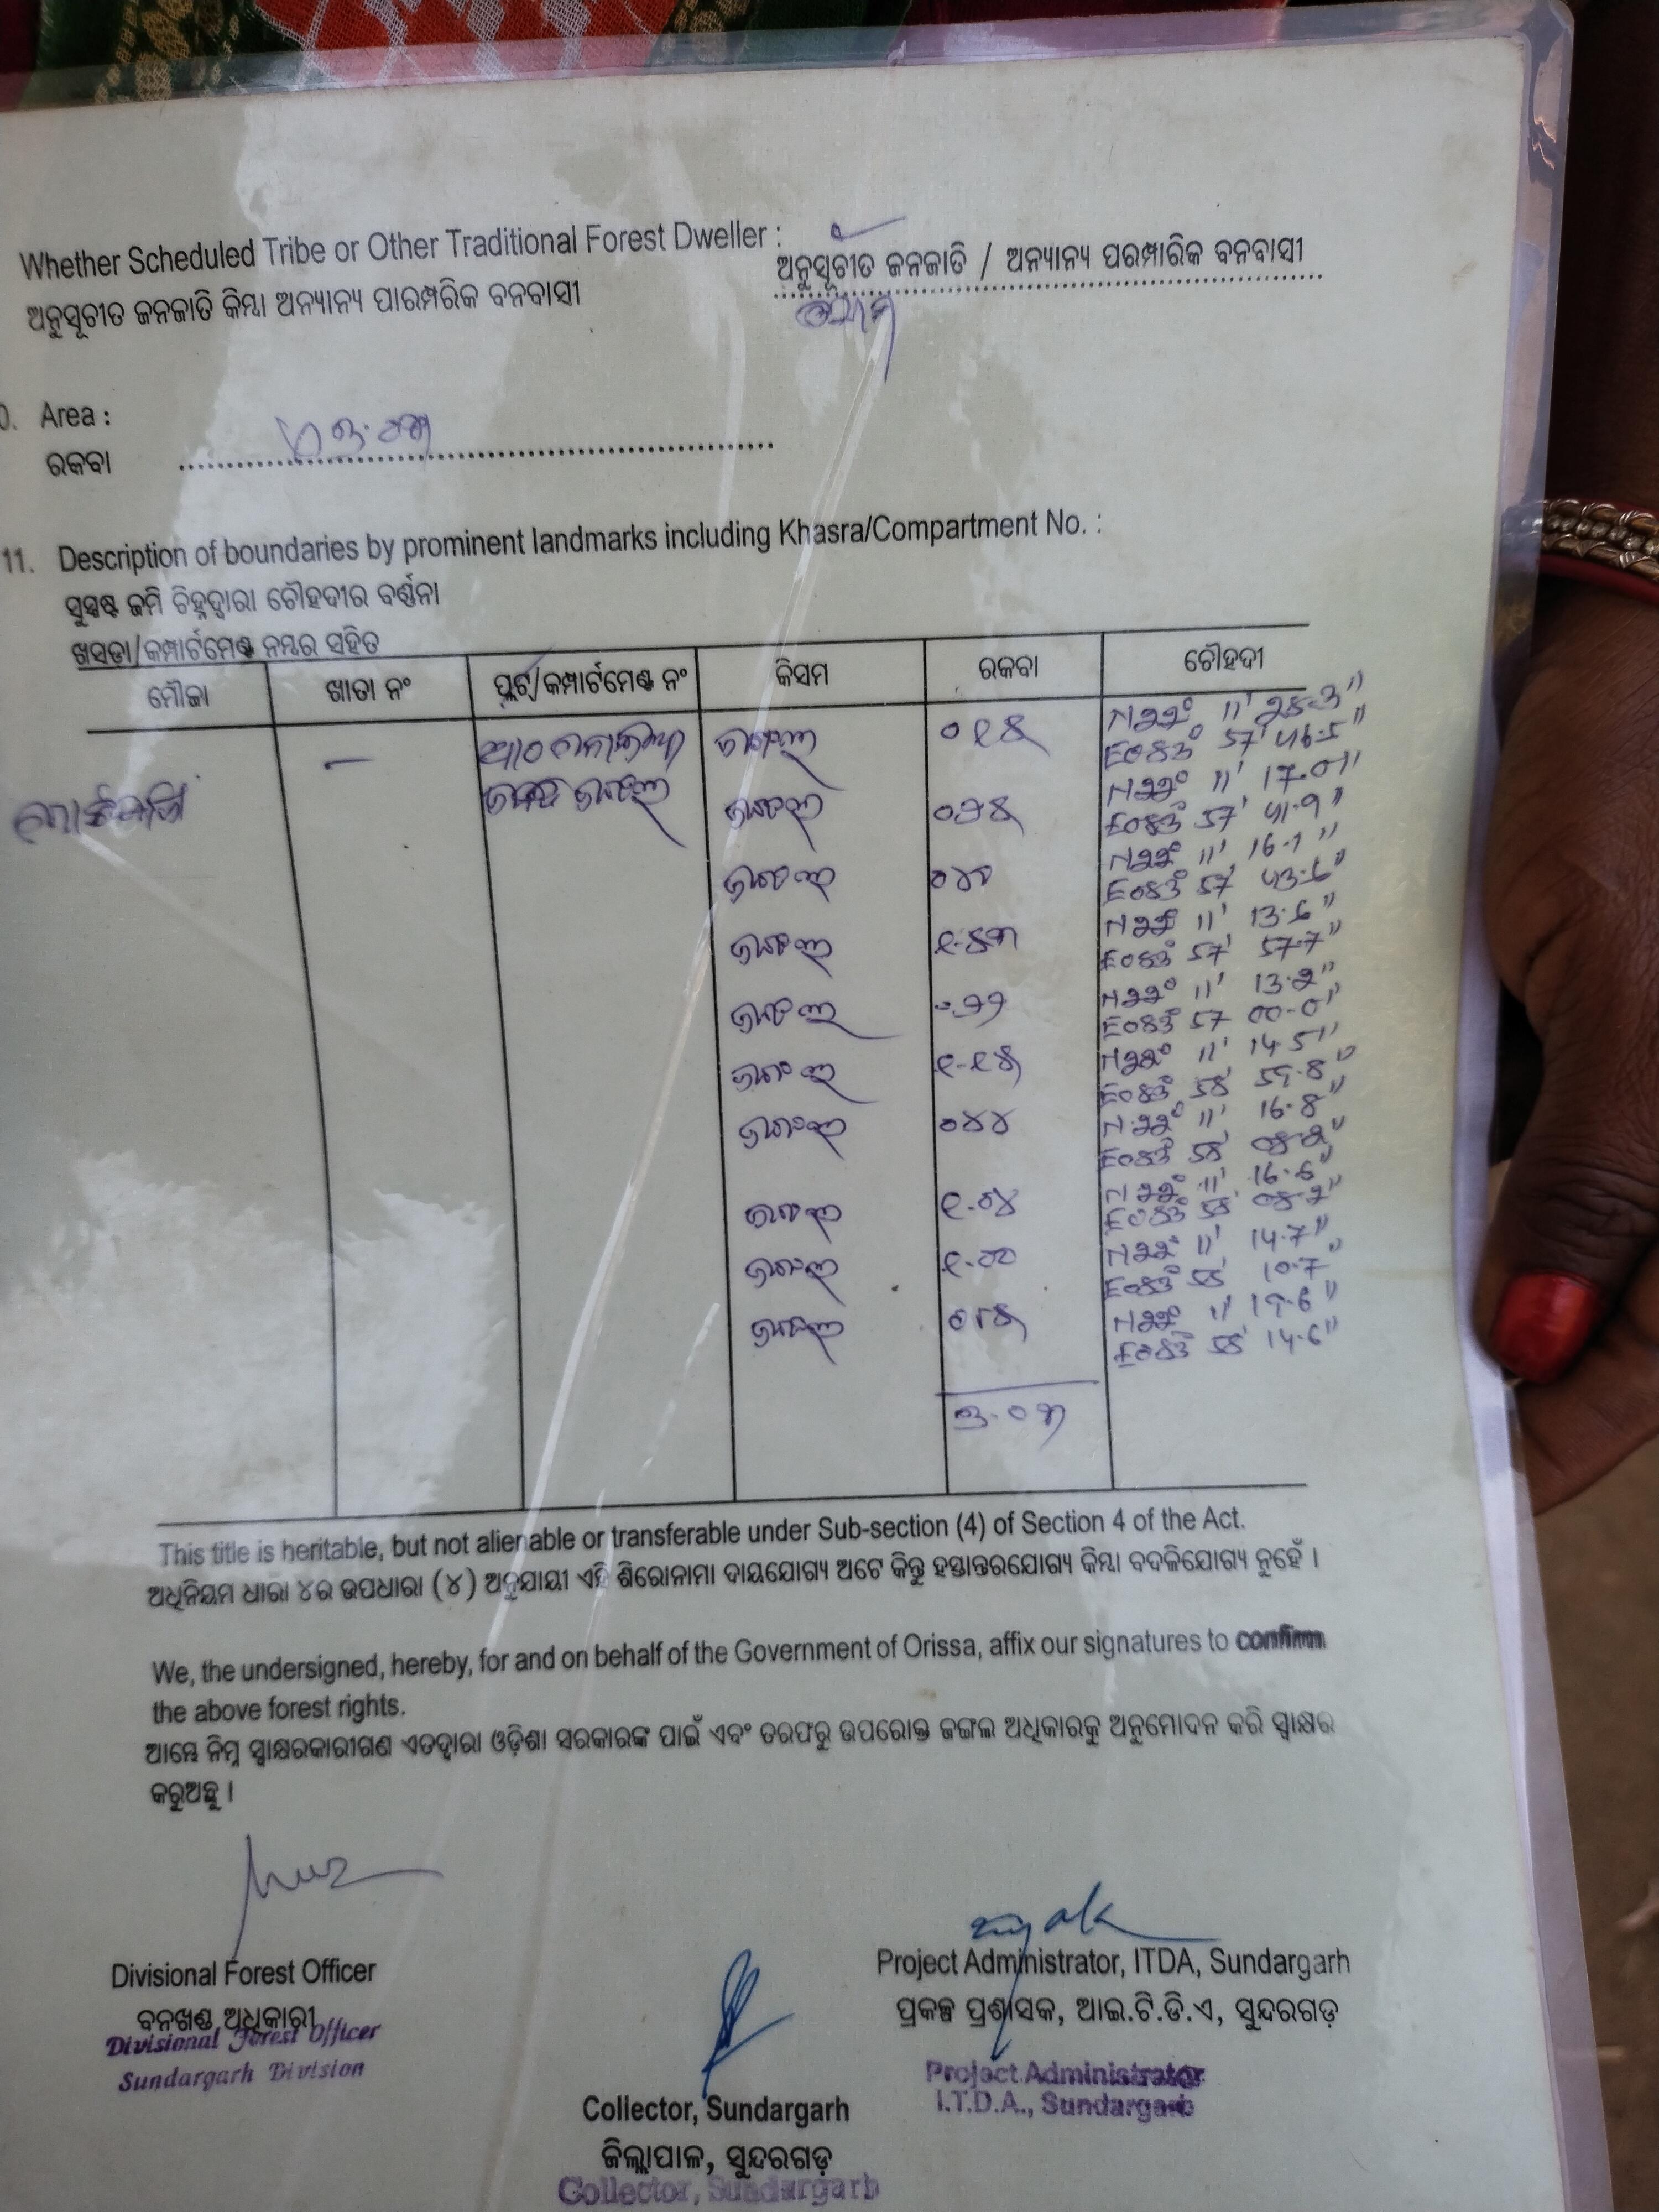 Whether Scheduled Tribe or Other Traditional Forest Dweller :
ଅନୁସୂଚୀତ ଜନଜାତି / ଅନ୍ୟାନ୍ୟ ପରମ୍ପାରିକ ବନବାସୀ
ଅନୁସୂଚୀତ ଜନଜାତି କିମ୍ଭା ଅନ୍ୟାନ୍ୟ ପାରମ୍ପରିକ ବନବାସୀ
0. Area :
ରକବା
11. Description of boundaries by prominent landmarks including Khasra/Compartment No. :
ସୁସ୍ପଷ୍ଟ ଜମି ଚିହ୍ନଦ୍ୱାରା ଚୌହଦୀର ବର୍ଣ୍ଣନା
ଖସଡା/କମ୍ପାର୍ଟମେଣ୍ଟ ନମ୍ଭର ସହିତ
ମୌଜା ଖାତା ନଂ ପ୍ଲଟ୍/କମ୍ପାର୍ଟମେଣ୍ଟ ନଂ କିସମ ରକବା ଚୌହଦୀ
ଜଙ୍ଗଲ N22° 11' 28.3"
E083° 57' 46.5"
ଜଙ୍ଗଲ N22° 11' 17.0"
E083° 57' 41.9"
ଜଙ୍ଗଲ ୦୪୦ N22° 11' 16.1"
E083° 57' 43.6"
ଜଙ୍ଗଲ N22° 11' 13.6"
E083° 57' 57.7"
ଜଙ୍ଗଲ N22° 11' 13.2"
E083° 57' 00.0"
ଜଙ୍ଗଲ N22° 11' 14.5"
E083° 58' 59.8"
ଜଙ୍ଗଲ ୦୪୪ N22° 11' 16.8"
E083° 58' 08.2"
ଜଙ୍ଗଲ ୧.୦୪ N22° 11' 16.6"
E083° 58' 08.2"
ଜଙ୍ଗଲ ୧.୦୦ N22° 11' 14.7"
E083° 58' 10.7"
ଜଙ୍ଗଲ N22° 11' 19.6"
E083° 58' 14.6"
This title is heritable, but not alienable or transferable under Sub-section (4) of Section 4 of the Act.
ଅଧିନିୟମ ଧାରା ୪ର ଉପଧାରା (୪) ଅନୁଯାୟୀ ଏହି ଶିରୋନାମା ଦାୟଯୋଗ୍ୟ ଅଟେ କିନ୍ତୁ ହସ୍ତାନ୍ତରଯୋଗ୍ୟ କିମ୍ଭା ବଦଳିଯୋଗ୍ୟ ନୁହେଁ ।
We, the undersigned, hereby, for and on behalf of the Government of Orissa, affix our signatures to confirm
the above forest rights.
ଆମ୍ଭେ ନିମ୍ନ ସ୍ୱାକ୍ଷରକାରୀଗଣ ଏତଦ୍ୱାରା ଓଡ଼ିଶା ସରକାରଙ୍କ ପାଇଁ ଏବଂ ତରଫରୁ ଉପରୋକ୍ତ ଜଙ୍ଗଲ ଅଧିକାରକୁ ଅନୁମୋଦନ କରି ସ୍ୱାକ୍ଷର
କରୁଅଛୁ ।
Divisional Forest Officer
ବନଖଣ୍ଡ ଅଧିକାରୀ
Divisional Forest Officer
Sundargarh Division
Project Administrator, ITDA, Sundargarh
ପ୍ରକଳ୍ପ ପ୍ରଶାସକ, ଆଇ.ଟି.ଡି.ଏ, ସୁନ୍ଦରଗଡ଼
Project Administrator
I.T.D.A., Sundargarh
Collector, Sundargarh
ଜିଲ୍ଲାପାଳ, ସୁନ୍ଦରଗଡ଼
Collector, Sundargarh